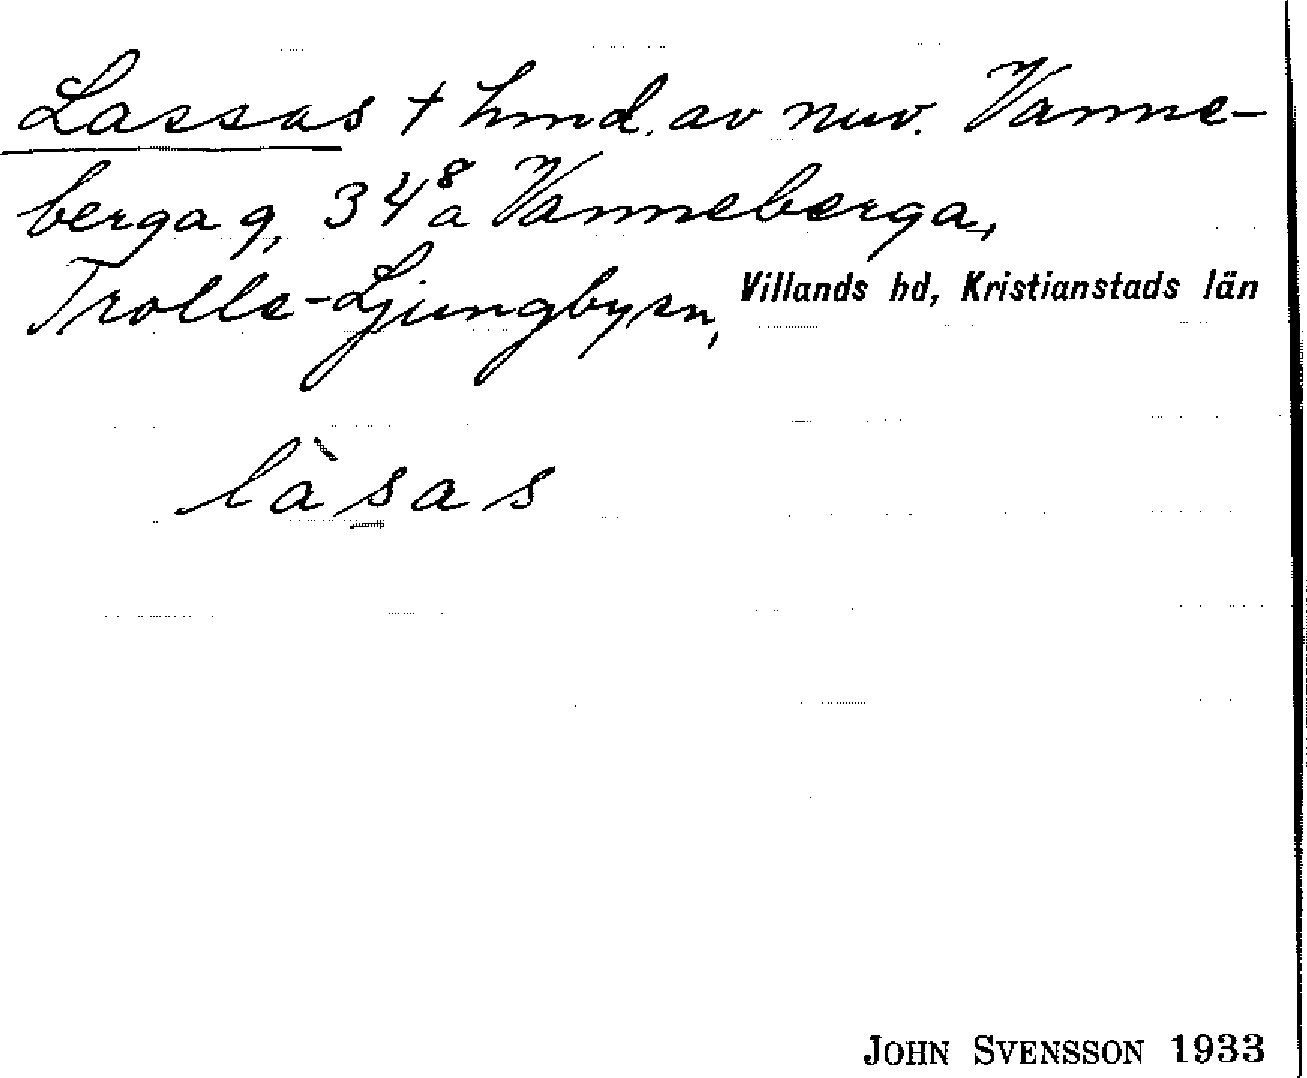 Lassas + hmd. av nuv. Vanne-
berga g, 34⁸a Vanneberga,
Trolle-Ljungby sn, Villands hd, Kristianstads län
làsas
JOHN SVENSSON 1933